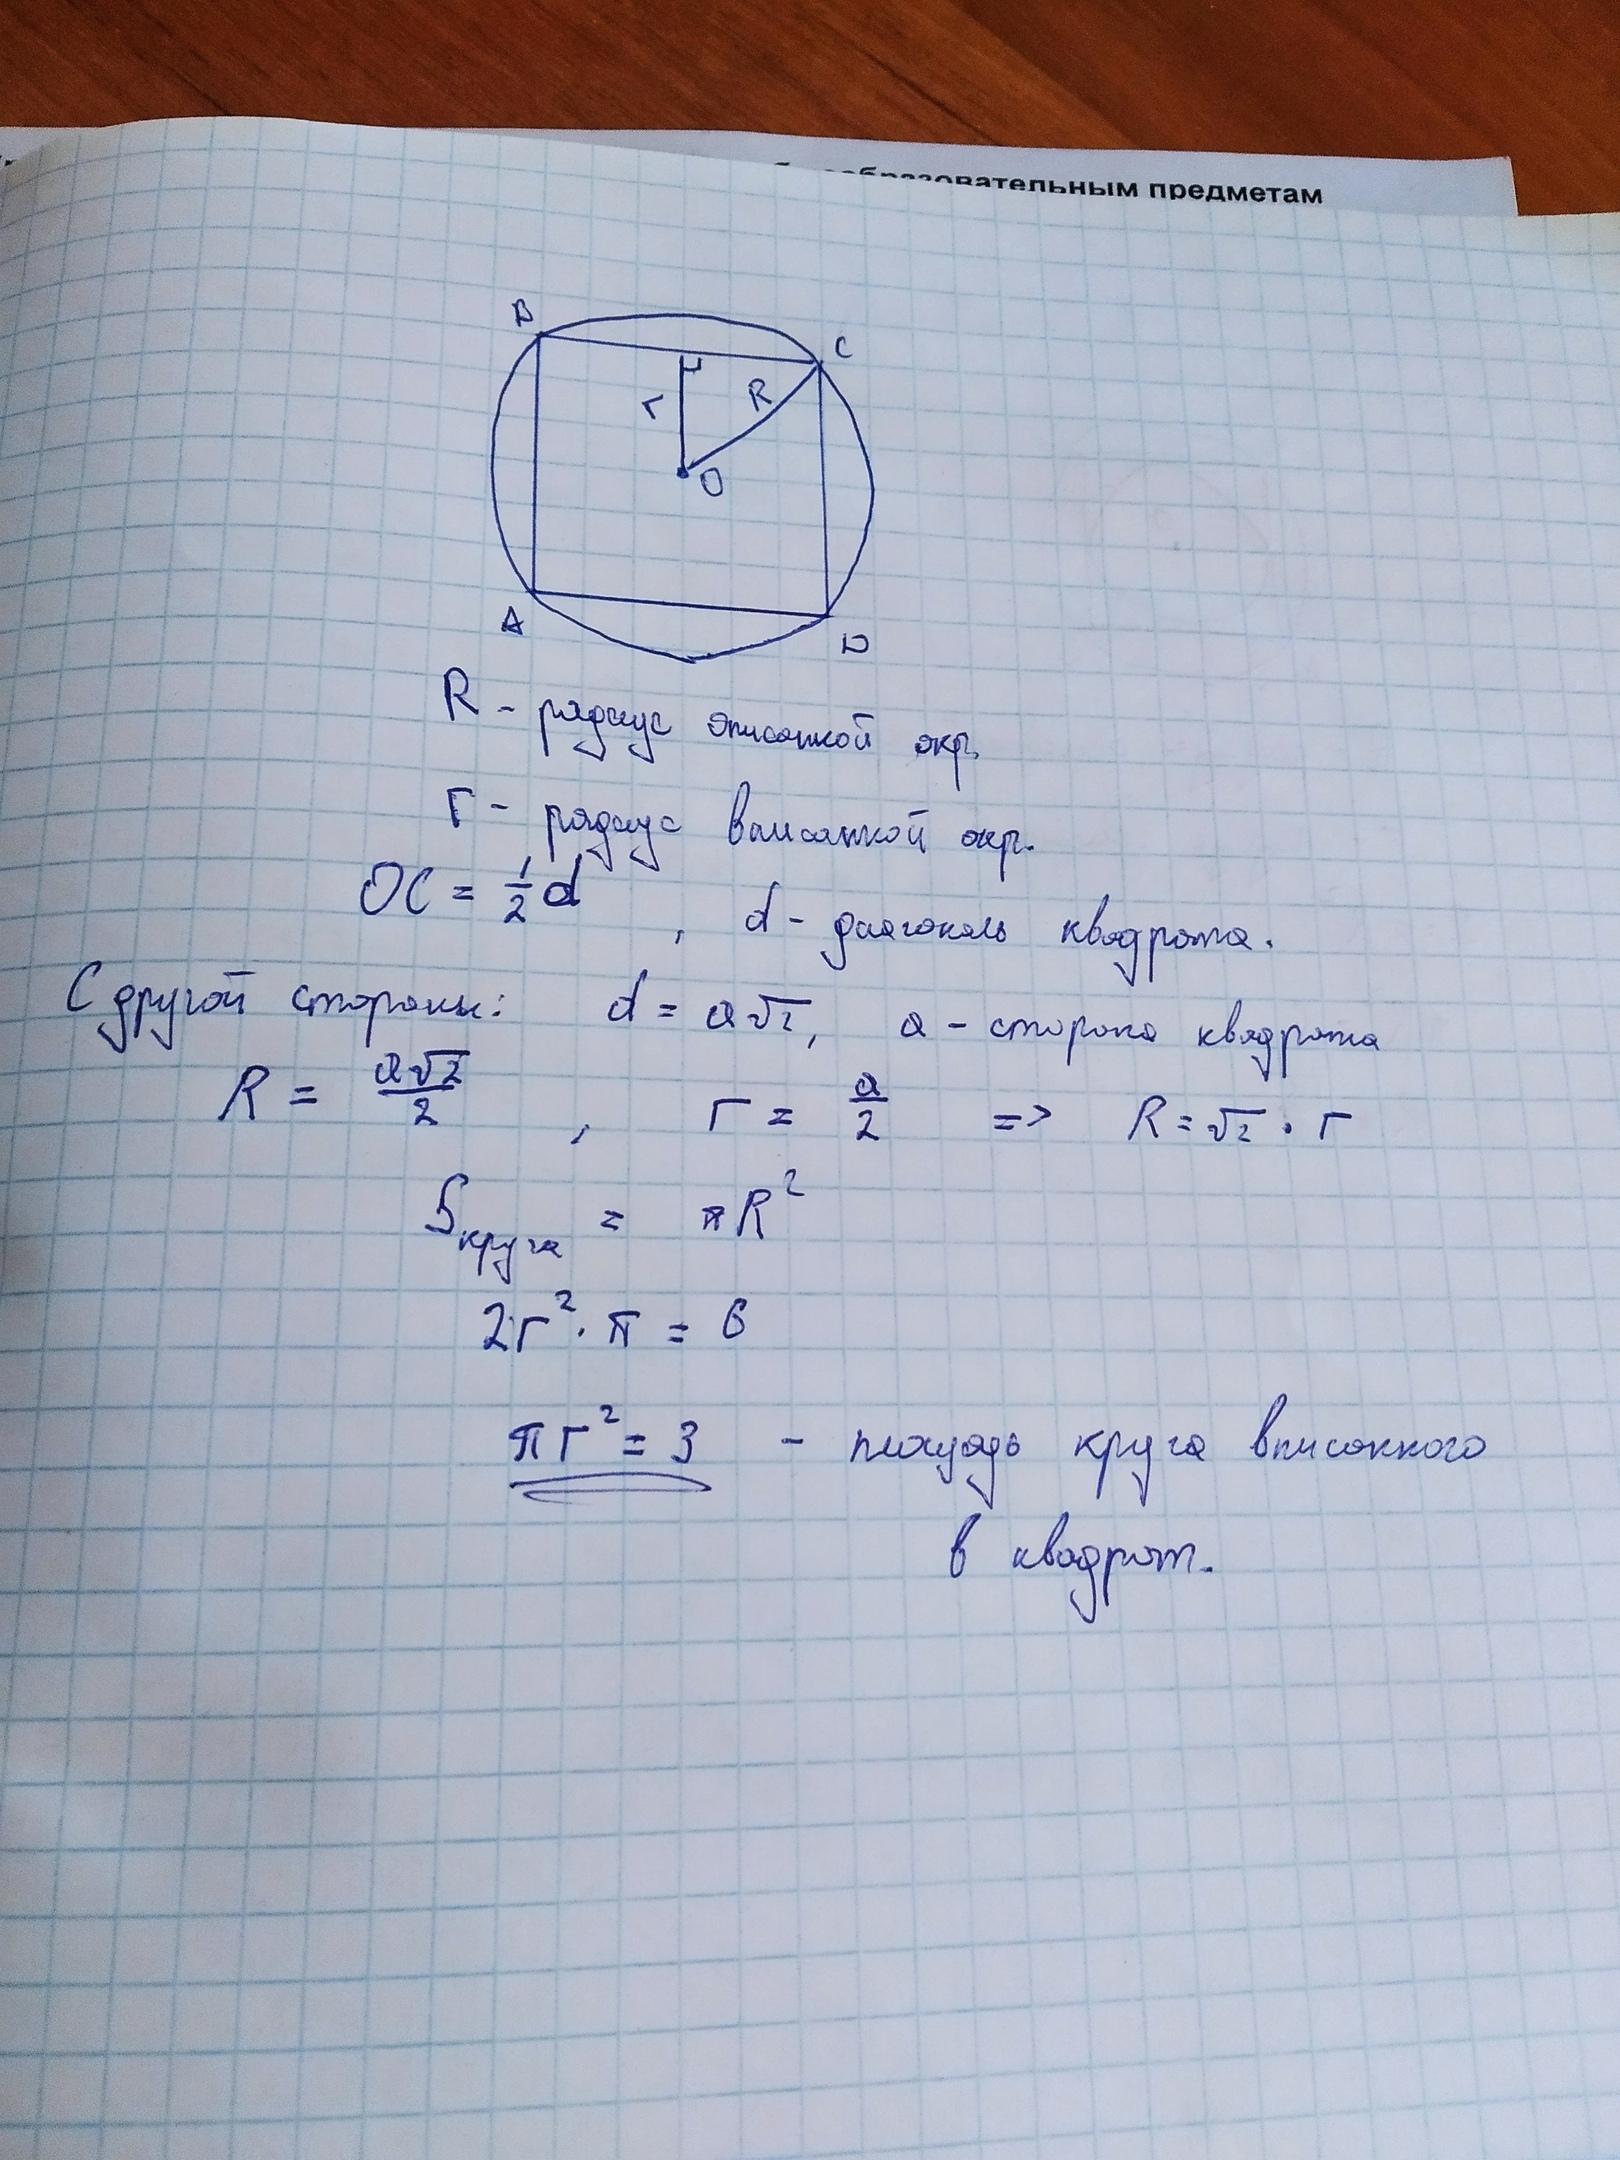 образовательным предметам
B
C
r
R
O
A
D
R - радиус описанной окр.
r - радиус вписанной окр.
OC = 1/2 d , d - диагональ квадрата.
С другой стороны: d = a√2, a - сторона квадрата
R = a√2/2 , r = a/2 => R = √2 · r
Sкруга = πR²
2r² · π = 6
πr² = 3 - площадь круга вписанного
в квадрат.